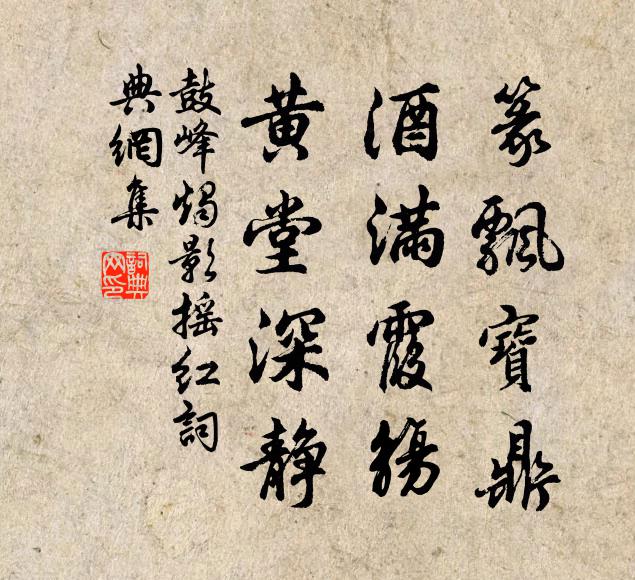 篆飄寶鼎
酒滿霞觴
黃堂深靜
鼓峰燭影摇紅詞
典網集
詞典網印